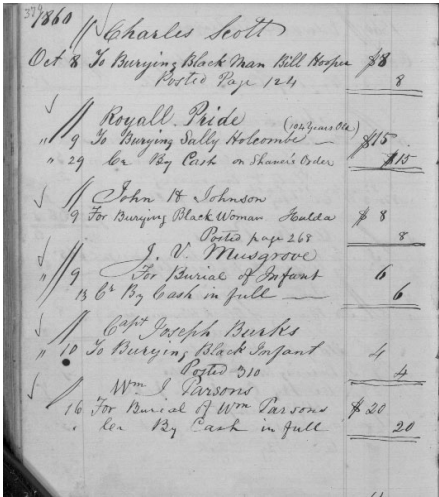 374
1860 // Charles Scott
Oct 8 To Burying Black Man Bill Hooper $8
Posted Page 124 8
// Royall Pride
(104 years Old)
" 9 To Burying Sally Holcombe — $15
" 29 Cr By Cash on Order $15
// John H Johnson
9 For Burying Black Woman Hulda $ 8
Posted page 268 8
// J. V. Musgrove
" 9 For Burial of Infant 6
13 Cr By Cash in full — 6
// Capt Joseph Burks
" 10 To Burying Black Infant 4
Posted 310 4
// Wm J Parsons
16 For Burial of Wm Parsons $ 20
" Cr By Cash in full 20